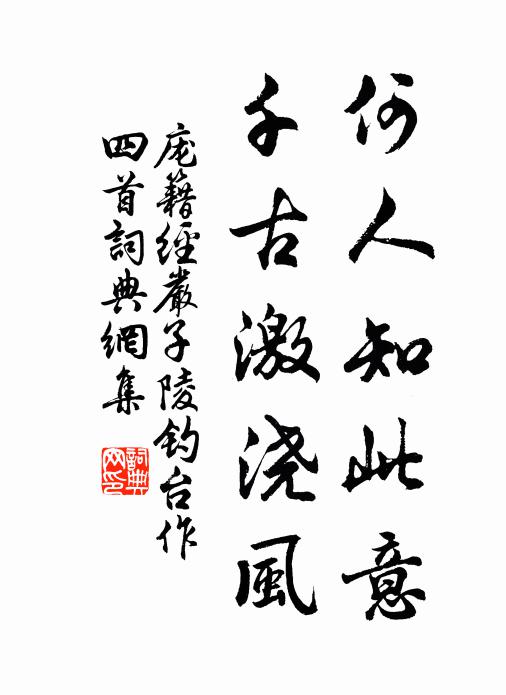 何人知此意
千古激浇風
庞籍經嚴子陵釣台作
四首詞典網集
詞典
网印